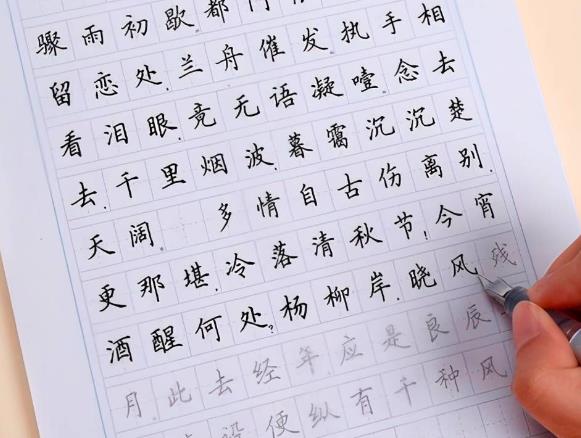 骤雨初歇.都门
留恋处.兰舟催发.执手相
看泪眼.竟无语凝噎.念去
去.千里烟波.暮霭沉沉楚
天阔.多情自古伤离别.
更那堪.冷落清秋节!今宵
酒醒何处?杨柳岸.晓风残
月.此去经年.应是良辰
设.便纵有千种风